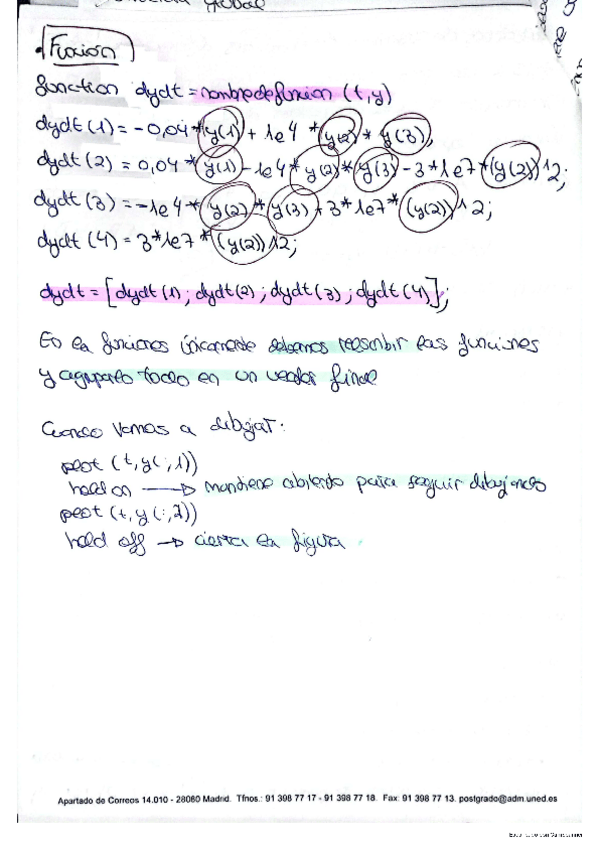 Función
function dydt = nombredefuncion (t,y)
dydt(1) = -0,04*y(1) + 1e4 *y(2) * y(3);
dydt (2) = 0,04*y(1) - 1e4*y(2)*y(3) - 3*1e7*(y(2))^2;
dydt (3) = -1e4*y(2)*y(3) + 3*1e7*(y(2))^2;
dydt (4) = 3*1e7*(y(2))^2;
dydt = [dydt (1); dydt(2); dydt(3); dydt(4)];
En la funciones únicamente debemos reescribir las funciones
y agruparlo todo en un vector final
Cuando vamos a dibujar:
plot (t,y(:,1))
hold on → mantiene abierto para seguir dibujando
plot (t,y(:,2))
hold off → cierra la figura
Apartado de Correos 14.010 - 28080 Madrid. Tfnos.: 91 398 77 17 - 91 398 77 18. Fax: 91 398 77 13. postgrado@adm.uned.es